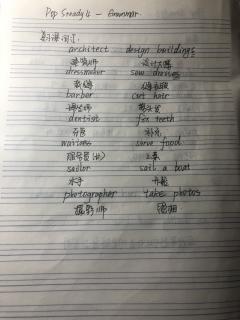 Pop Steady 4 - Grammar
architect design buildings
建筑师 设计大楼
dressmaker sew dresses
裁缝
barber cut hair
理发师 剪头发
dentist fix teeth
牙医 补牙
waitress serve food
服务员(女) 上菜
sailor sail a boat
水手 开船
photographer take photos
摄影师 照相